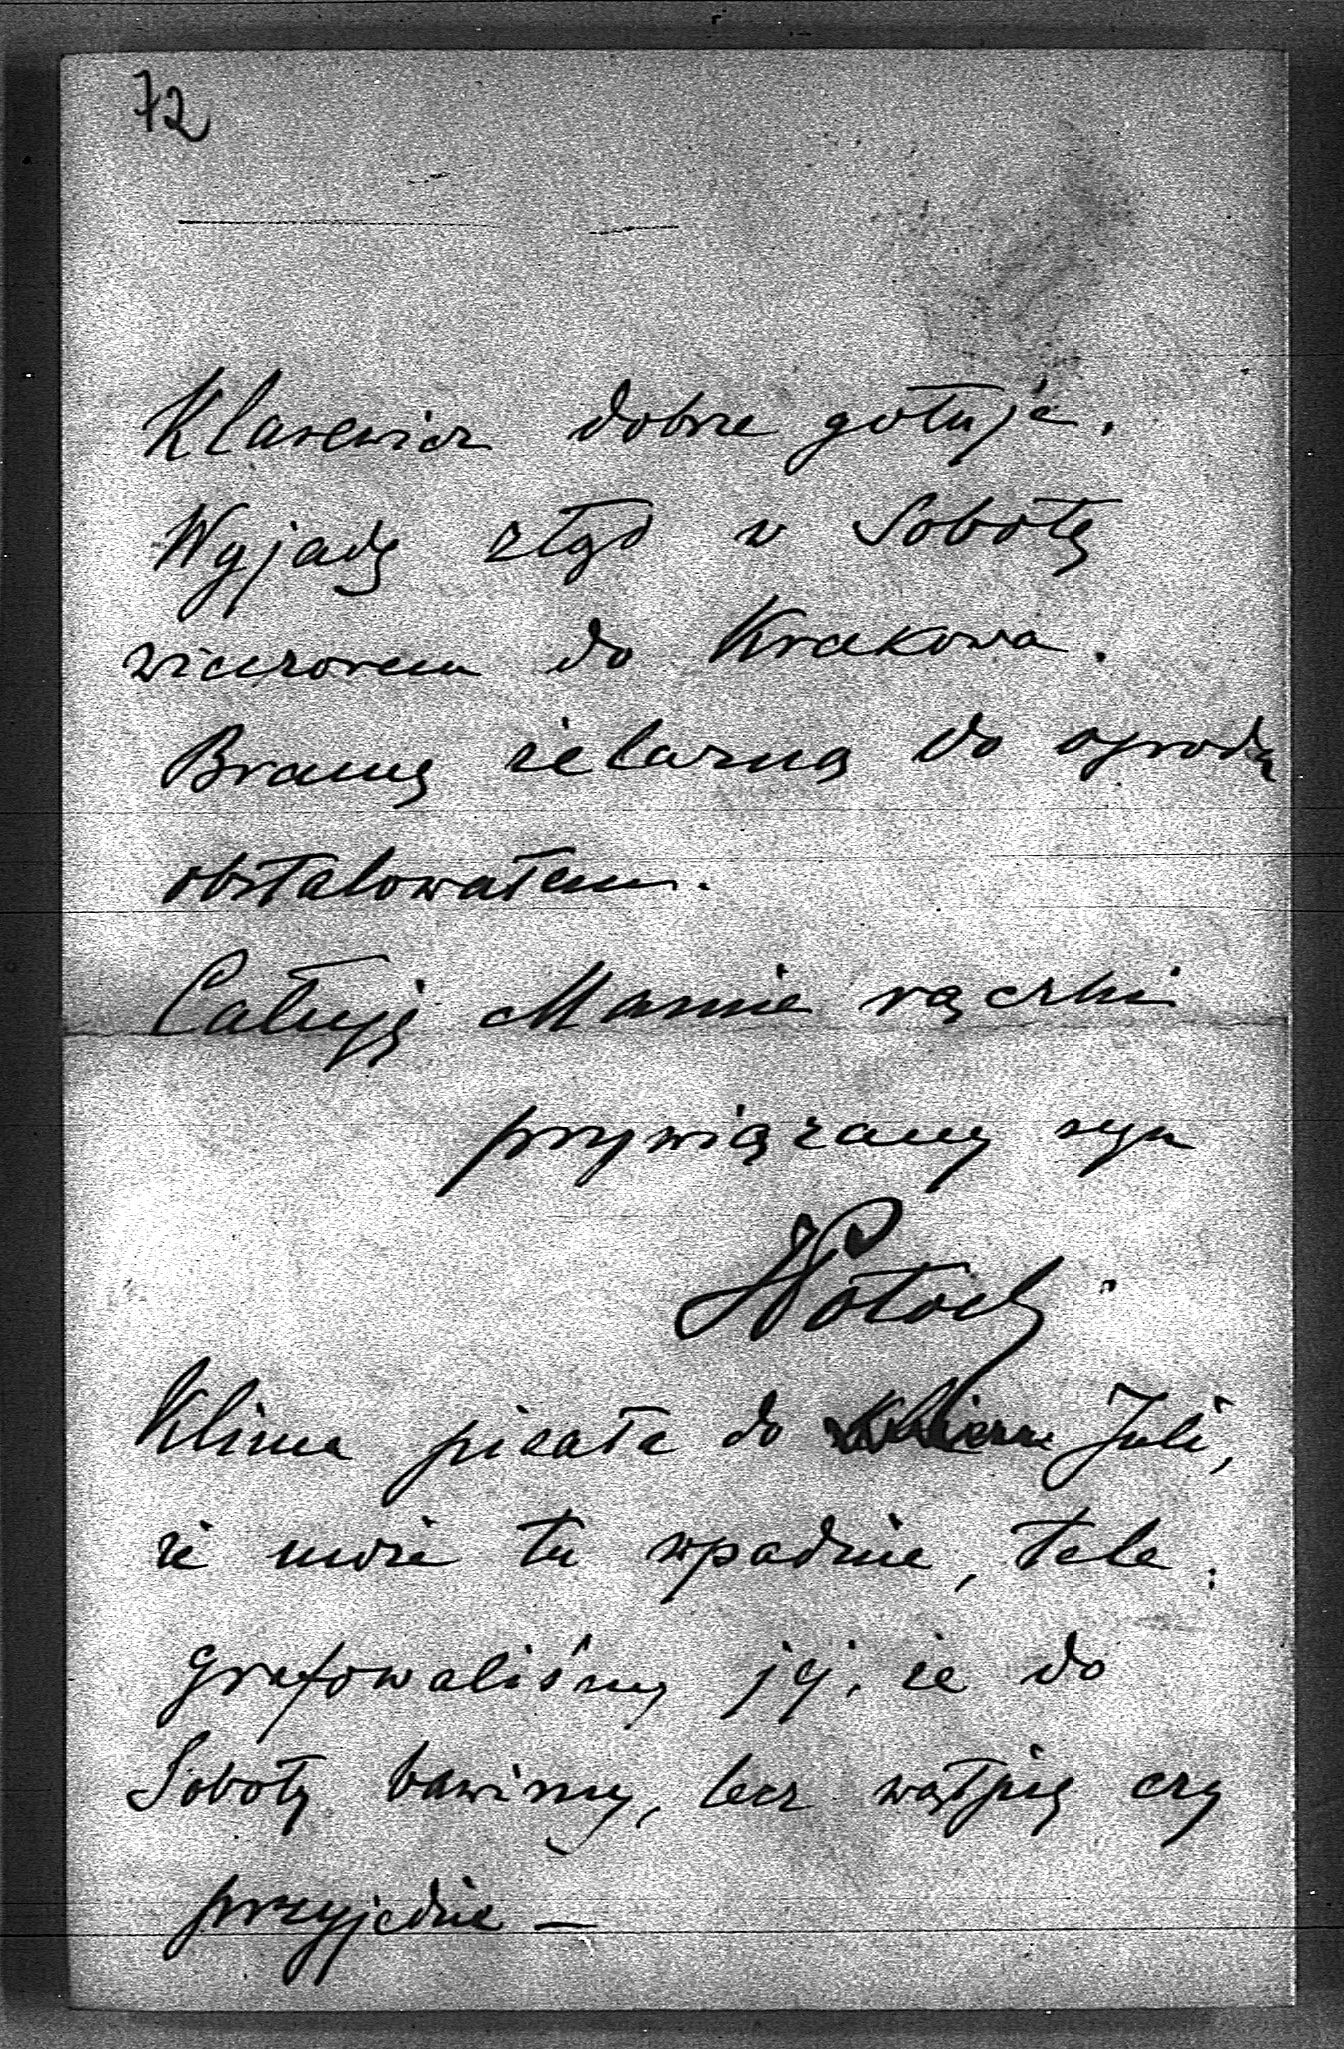 72
Klarewicz dobrze gotuje.
Wyjadę ztąd w Sobotę
wieczorem do Krakowa.
Bramę żelazną do ogrodu
obstalowałem.
Całuję Mamie rączki
przywiązany syn
Potocki
Klima pisała do Juli,
że może tu wpadnie, tele
grafowaliśmy jej, że do
Soboty bawimy, lecz wątpię czy
przyjedzie —